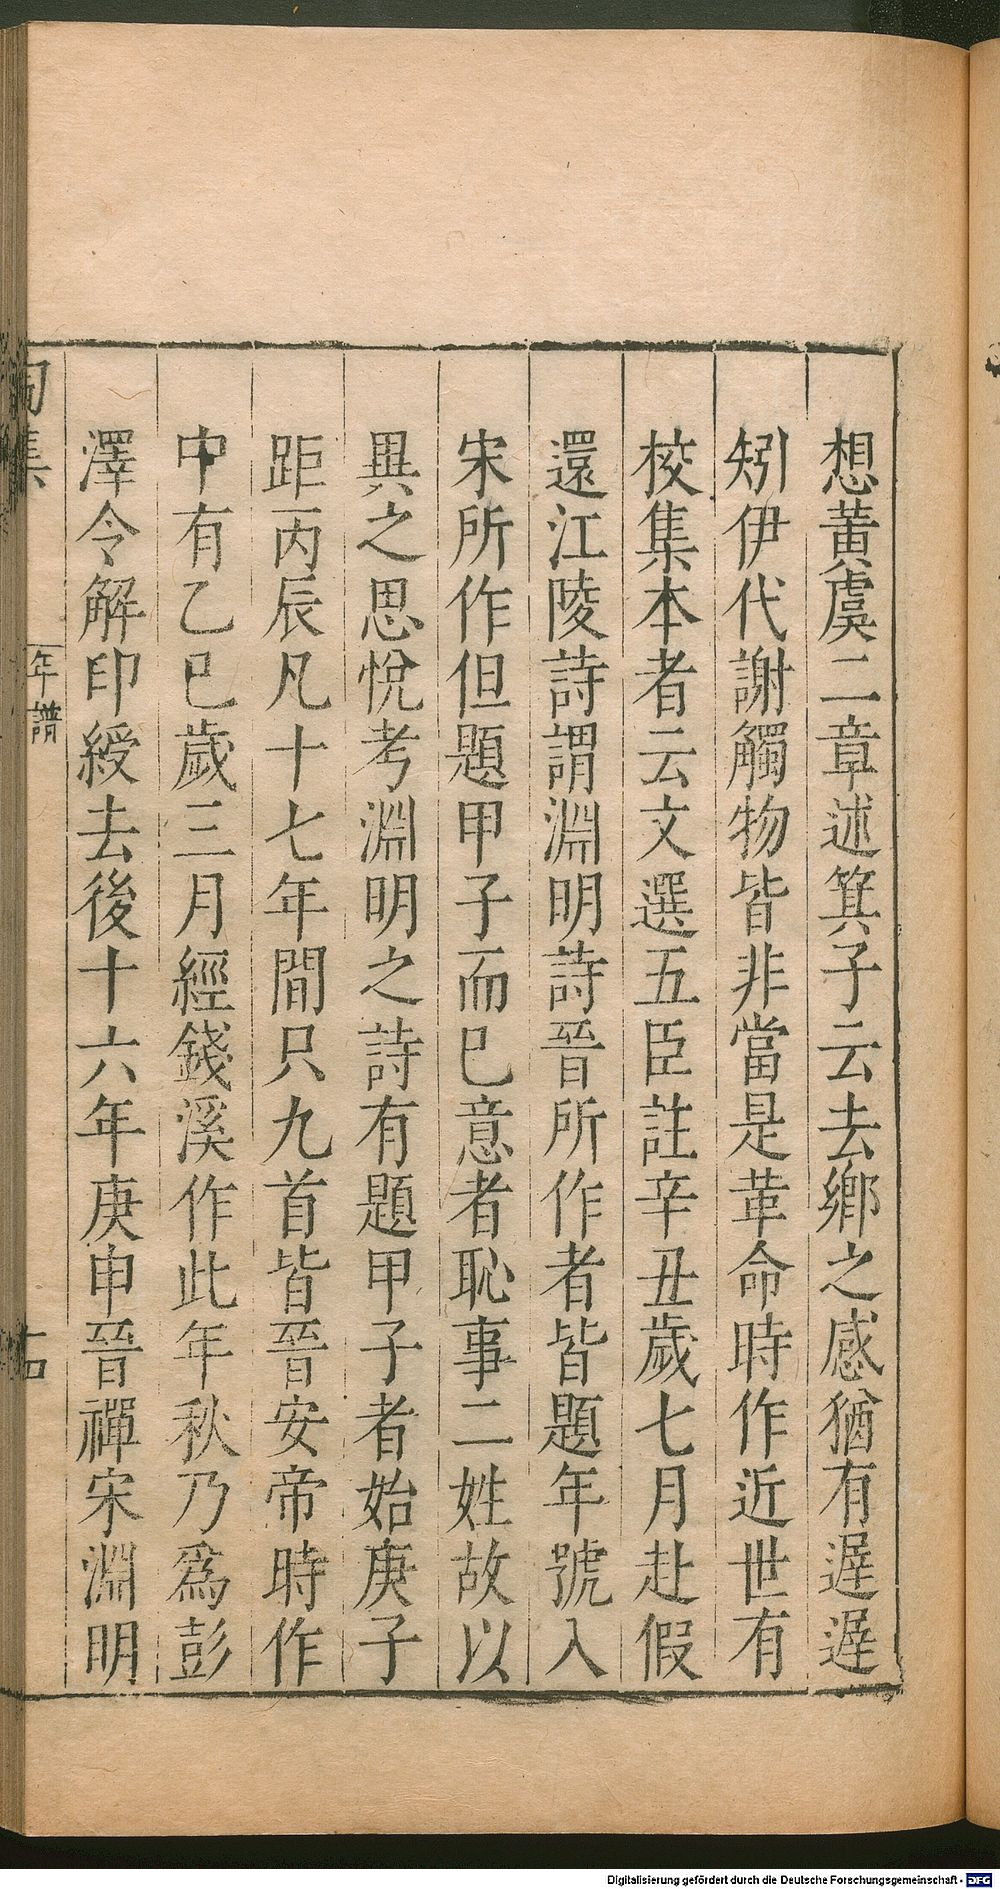 想黃虞二章述箕子云去鄉之感猶有遲遲
矧伊代謝觸物皆非當是革命時作近世有
校集本者云文選五臣註辛丑歲七月赴假
還江陵詩謂淵明詩晉所作者皆題年號入
宋所作但題甲子而已意者恥事二姓故以
異之思悅考淵明之詩有題甲子者始庚子
距丙辰凡十七年間只九首皆晉安帝時作
中有乙巳歲三月經錢溪作此年秋乃爲彭
澤令解印綬去後十六年庚申晉禪宋淵明
陶集
年譜
十四
Digitalisierung gefördert durch die Deutsche Forschungsgemeinschaft - DFG